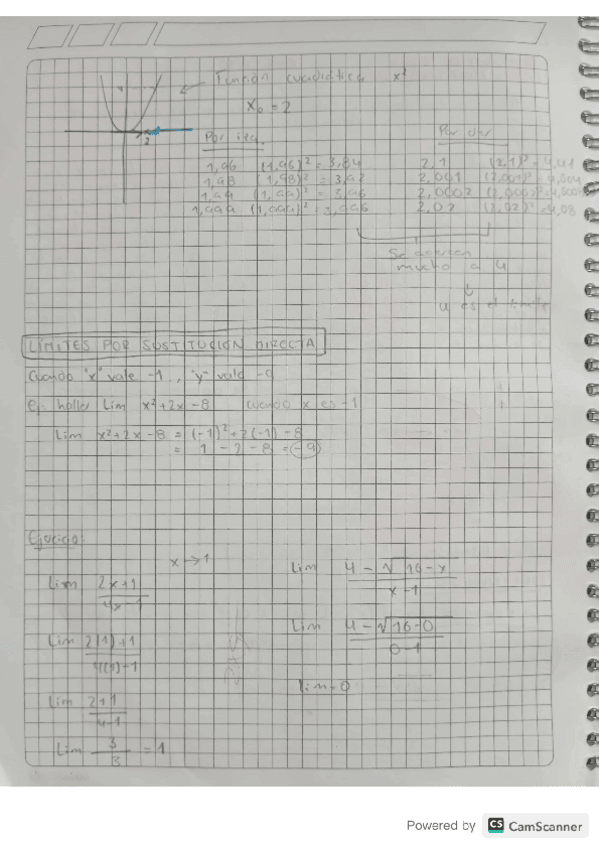 Función cuadrática x²
X₀ = 2
Por izq. Por der
1,96 (1,96)² = 3,84 2,1 (2,1)² = 4,41
1,98 (1,98)² = 3,92 2,001 (2,001)² = 4,004
1,99 (1,99)² = 3,96 2,0002 (2,0002)² = 4,000
1,999 (1,999)² = 3,996 2,02 (2,02)² = 4,08
Se acercan
mucho a 4
4 es el limite
LIMITES POR SUSTITUCIÓN DIRECTA
Cuando "x" vale -1, "y" vale -9
Ej: hallar Lim x²+2x-8 cuando x es -1
Lim x²+2x-8 = (-1)²+2(-1)-8
= 1-2-8 = -9
Ejercicio:
x→1
Lim 2x+1
4x-1
Lim 2(1)+1
4(1)-1
Lim 2+1
4-1
Lim 3/3 = 1
Lim 4-√16-x
x-1
Lim 4-√16-0
0-1
Lim=0
Powered by CS CamScanner